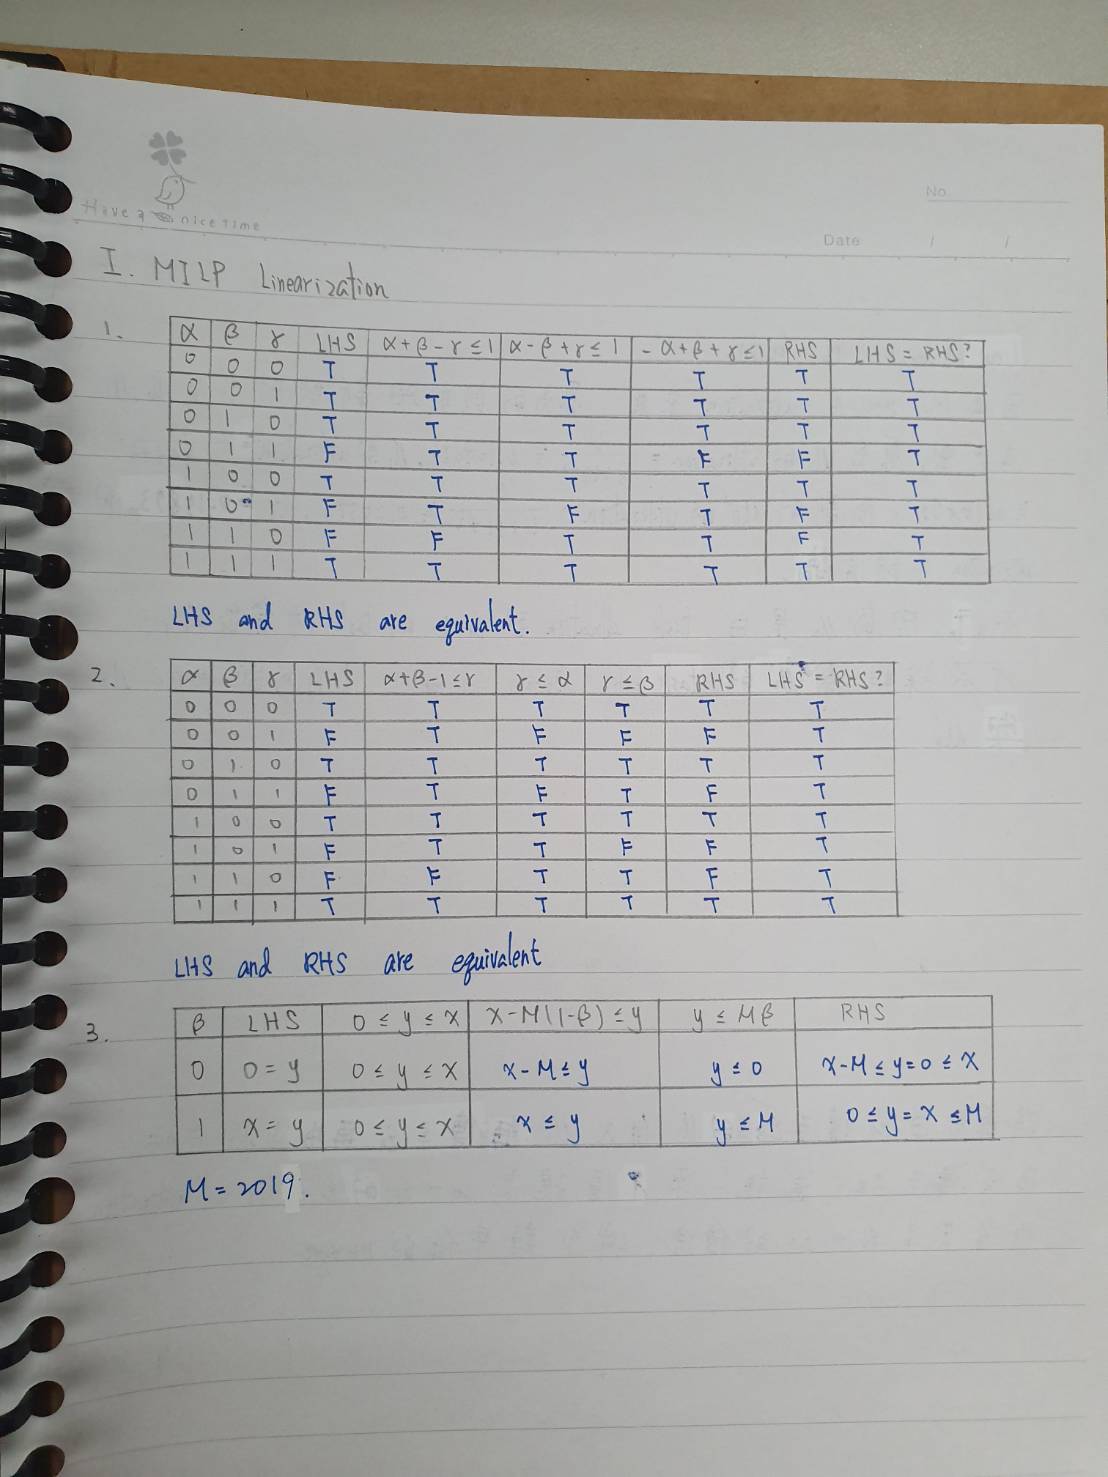 Have a nice time
No.
Date / /
I. MILP Linearization
1.
α β γ LHS α+β-γ≤1 α-β+γ≤1 -α+β+γ≤1 RHS LHS=RHS?
0 0 0 T T T T T T
0 0 1 T T T T T T
0 1 0 T T T T T T
0 1 1 F T T F F T
1 0 0 T T T T T T
1 0 1 F T F T F T
1 1 0 F F T T F T
1 1 1 T T T T T T
LHS and RHS are equivalent.
2.
α β γ LHS α+β-1≤γ γ≤α γ≤β RHS LHS=RHS?
0 0 0 T T T T T T
0 0 1 F T F F F T
0 1 0 T T T T T T
0 1 1 F T F T F T
1 0 0 T T T T T T
1 0 1 F T T F F T
1 1 0 F F T T F T
1 1 1 T T T T T T
LHS and RHS are equivalent
3.
β LHS 0≤y≤x x-M(1-β)≤y y≤Mβ RHS
0 0=y 0≤y≤x x-M≤y y≤0 x-M≤y=0≤x
1 x=y 0≤y≤x x≤y y≤M 0≤y=x≤M
M=2019.